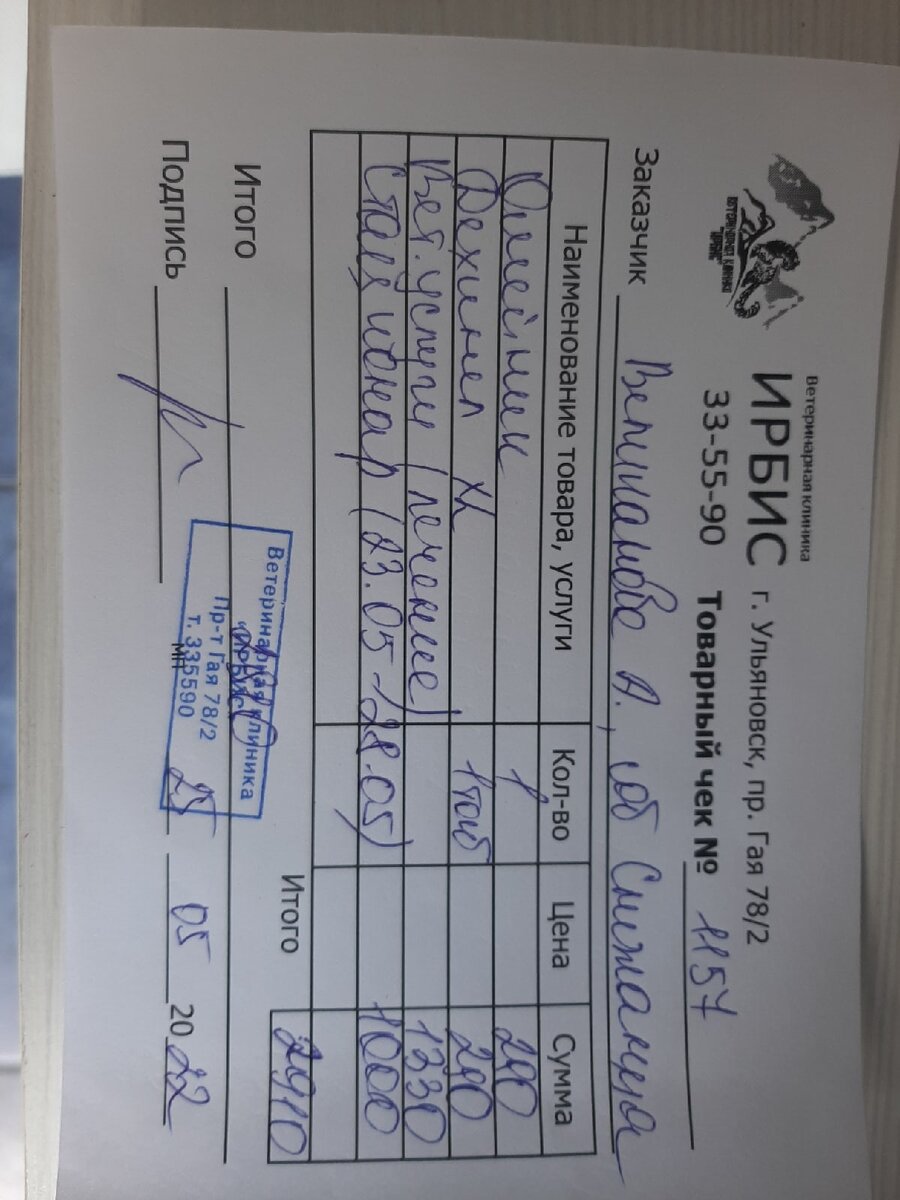 Ветеринарная клиника
ИРБИС г. Ульяновск, пр. Гая 78/2
33-55-90 Товарный чек № 1157
ВЕТЕРИНАРНАЯ КЛИНИКА
"ИРБИС"
Заказчик А., соб
Наименование товара, услуги Кол-во Цена Сумма
1 290
Дехинел XL 1 таб 290
Вет. услуги (лечение) 1330
Стационар (23.05-28.05) 1000
Итого 2910
Итого
Ветеринарная клиника
"ИРБИС"
Пр-т Гая 78/2
т. 335590
Подпись МП 25 05 2022